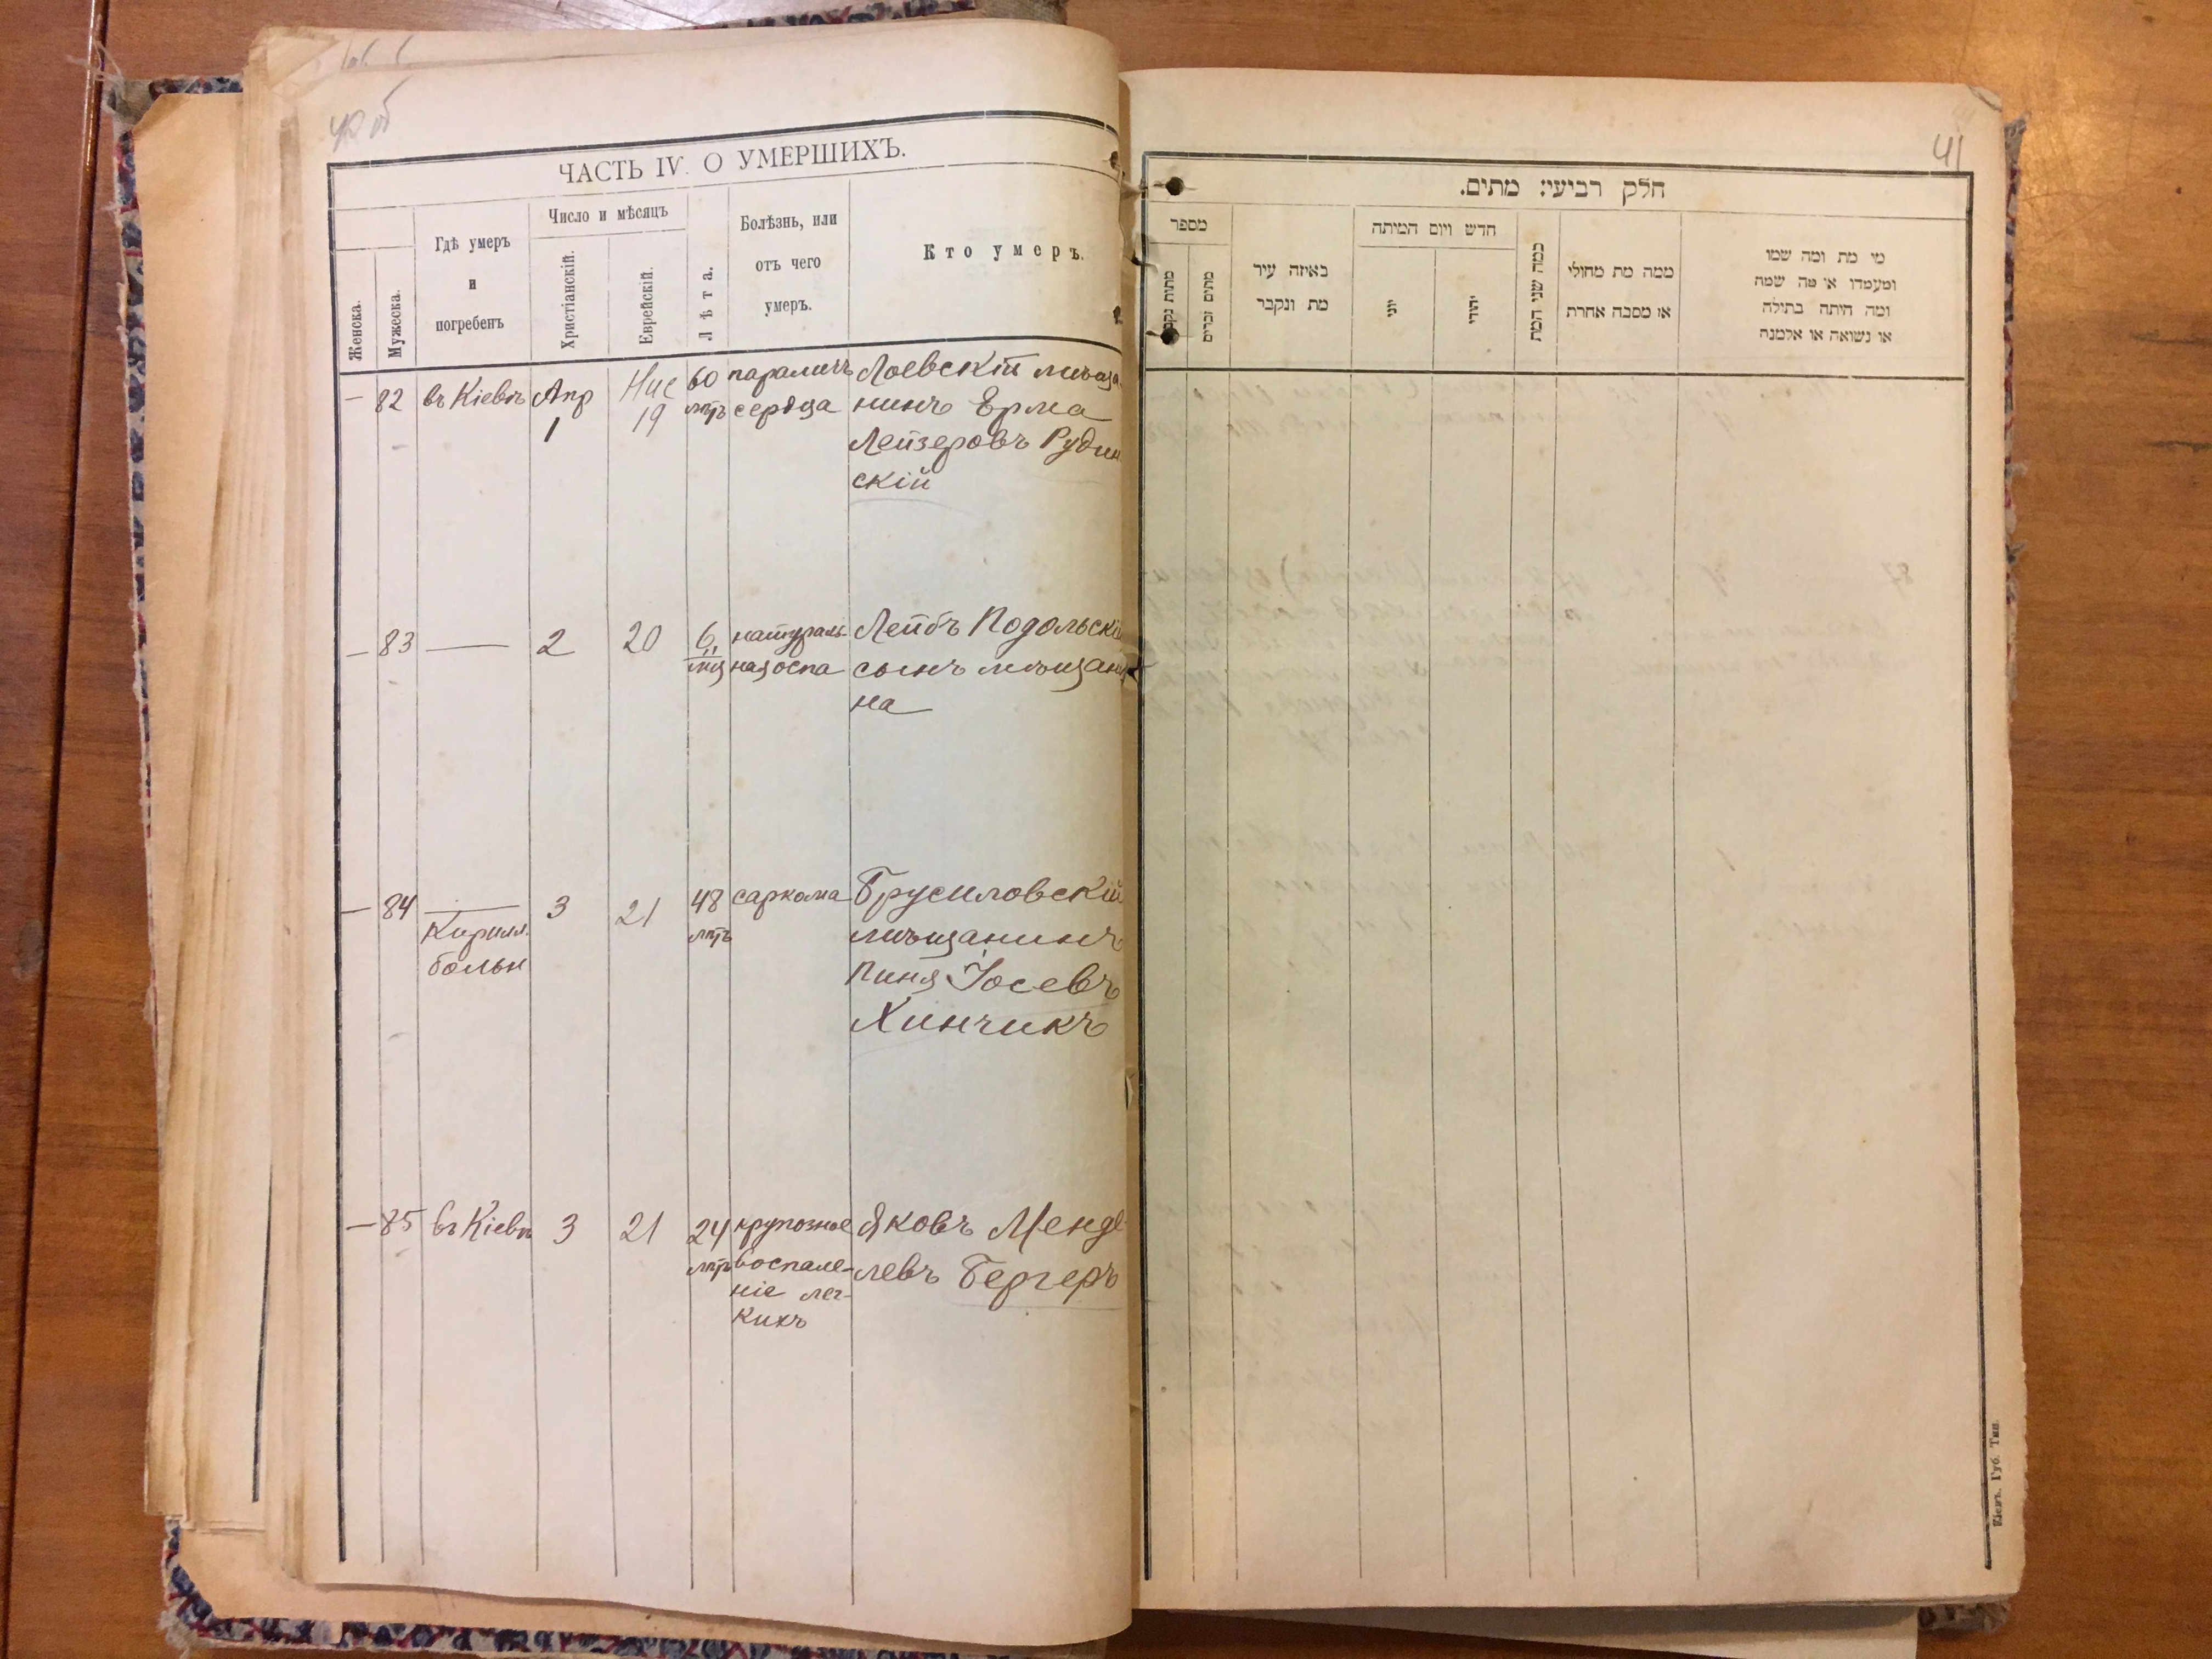 40 об
ЧАСТЬ IV. О УМЕРШИХЪ.
Женска.
Мужеска.
Гдѣ умеръ
и
погребенъ
Число и мѣсяцъ
Христіанскій.
Еврейскій.
Лѣта.
Болѣзнь, или
отъ чего
умеръ.
Кто умеръ.
— 82 въ Кіевѣ Апр Нис 60 параличъ Лоевскій мѣща
1 19 лѣтъ сердца нинъ Ерма
Лейзеровъ Рудин
скій
— 83 — 2 20 6 натураль- Лейбъ Подольскій
мц ная оспа сынъ мѣщани
на
— 84 — 3 21 48 саркома Брусиловскій
Кирилл. лѣтъ мѣщанинъ
больн Пиня Іосевъ
Хинчикъ
— 85 въ Кіевѣ 3 21 24 крупозное Яковъ Менде
лѣтъ воспале- левъ Бергеръ
ніе лег-
кихъ
41
חלק רביעי: מתים.
מספר
מתות נקבות
מתים זכרים
באיזה עיר
מת ונקבר
חדש ויום המיתה
יוני
יהודי
כמה שני המת
ממה מת מחולי
או מסבה אחרת
מי מת ומה שמו
ומעמדו או מה שמה
ומה היתה בתולה
או נשואה או אלמנה
Кіевъ. Губ. Тип.